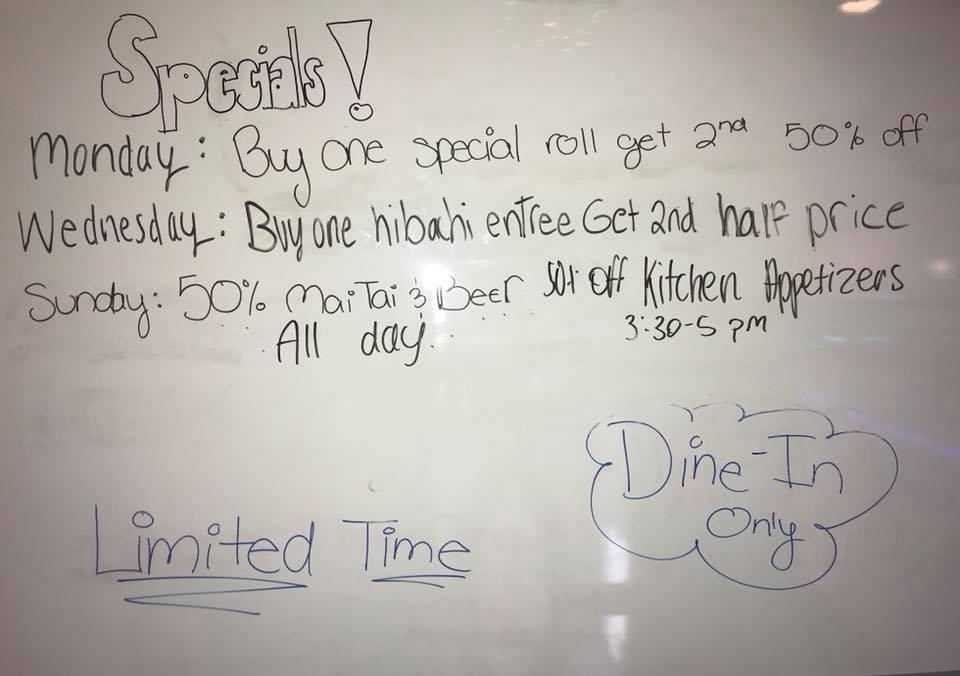 Specials!
Monday: Buy one special roll get 2nd 50% off
Wednesday: Buy one hibahi entree Get 2nd half price
Sunday: 50% Mai Tai & Beer 50% off Kitchen Appetizers
All day. 3:30-5 pm
Dine-In
Only
Limited Time